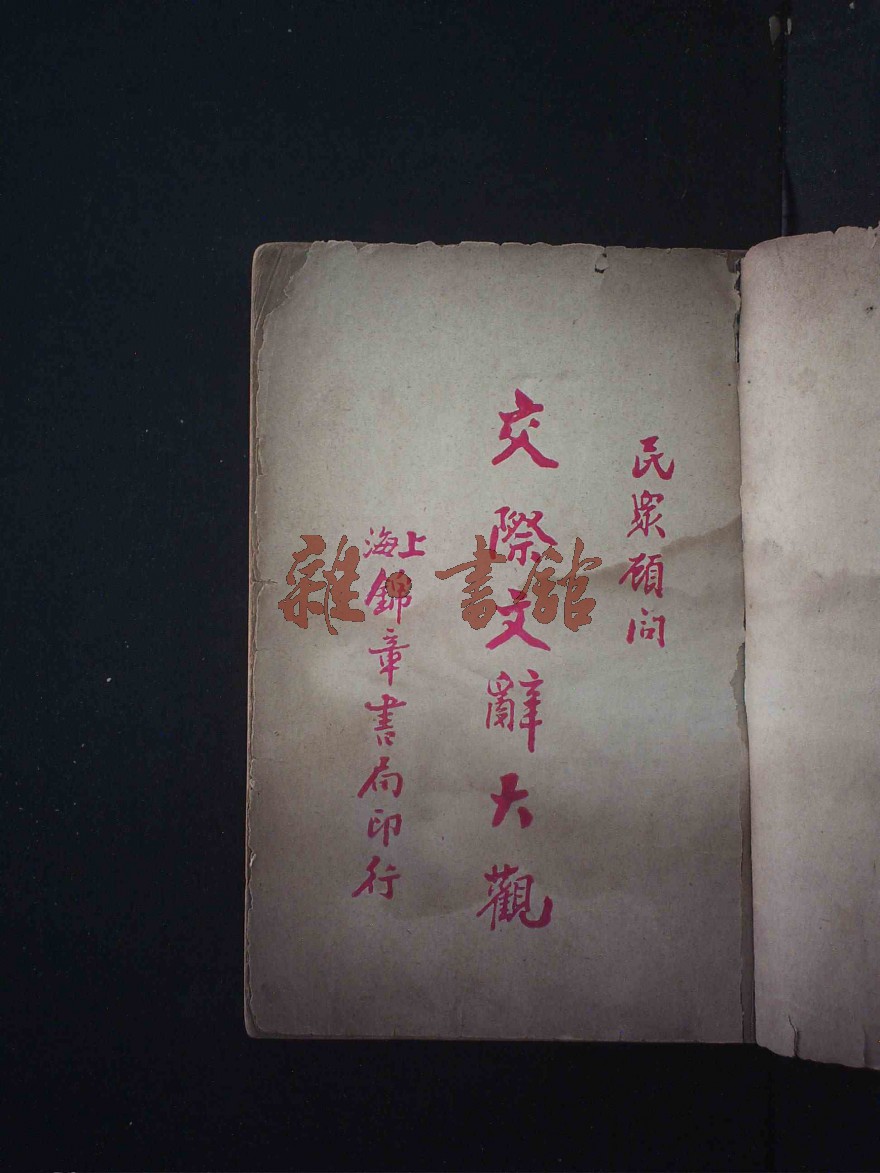 民眾顧问
交際文辭大觀
上海
錦章書局印行
雜·書館